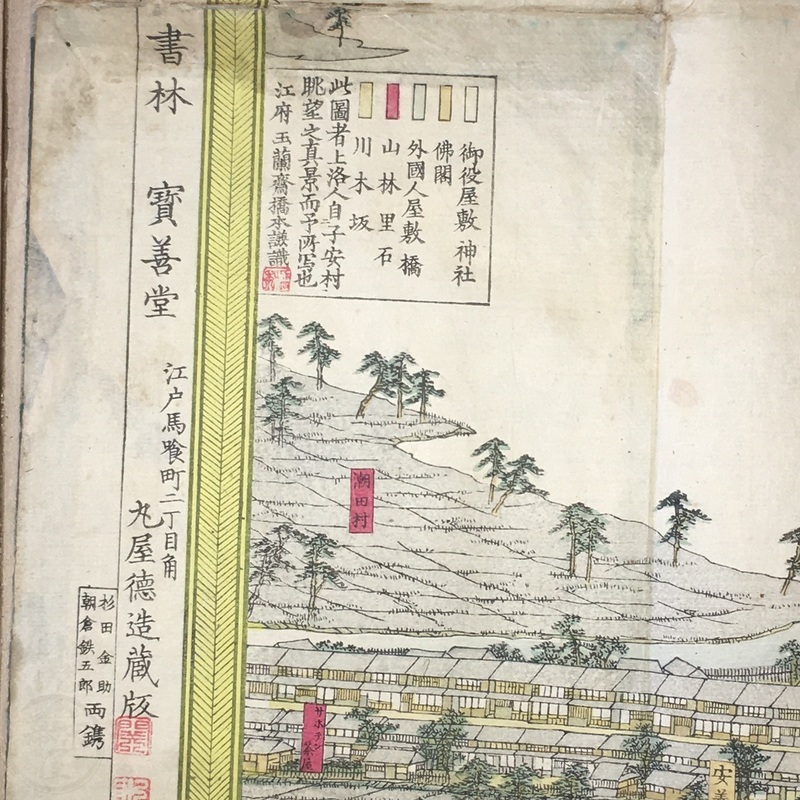 御役屋敷 神社
佛閣
外國人屋敷 橋
山林里石
川木坂
此圖者上洛人自子安村
眺望之真景而予所写也
江府 玉蘭齋橋本謙識
潮田村
サボテン茶屋
安養
書林 寶善堂
江戸馬喰町二丁目角
丸屋德造藏版
杉田金助
朝倉鉄五郎
両鐫